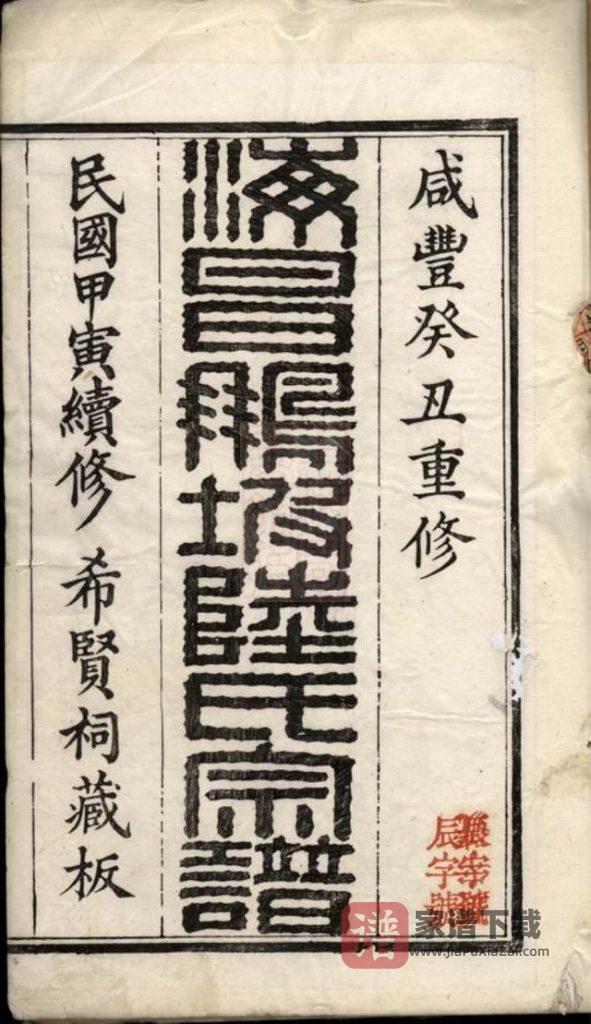 咸豐癸丑重修
海昌鵬坡陸氏宗譜
民國甲寅續修 希賢祠藏板
辰字號
谱 家谱下载
www.jiaPuxiaZai.com